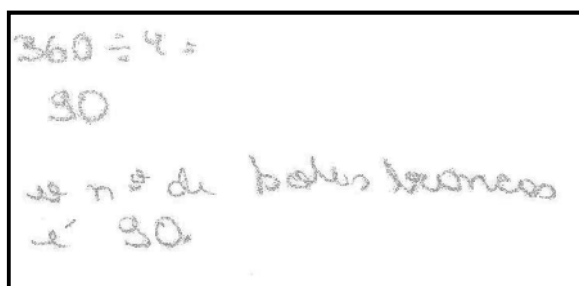 360 ÷ 4 =
90
o nº de bolas brancas
é 90.